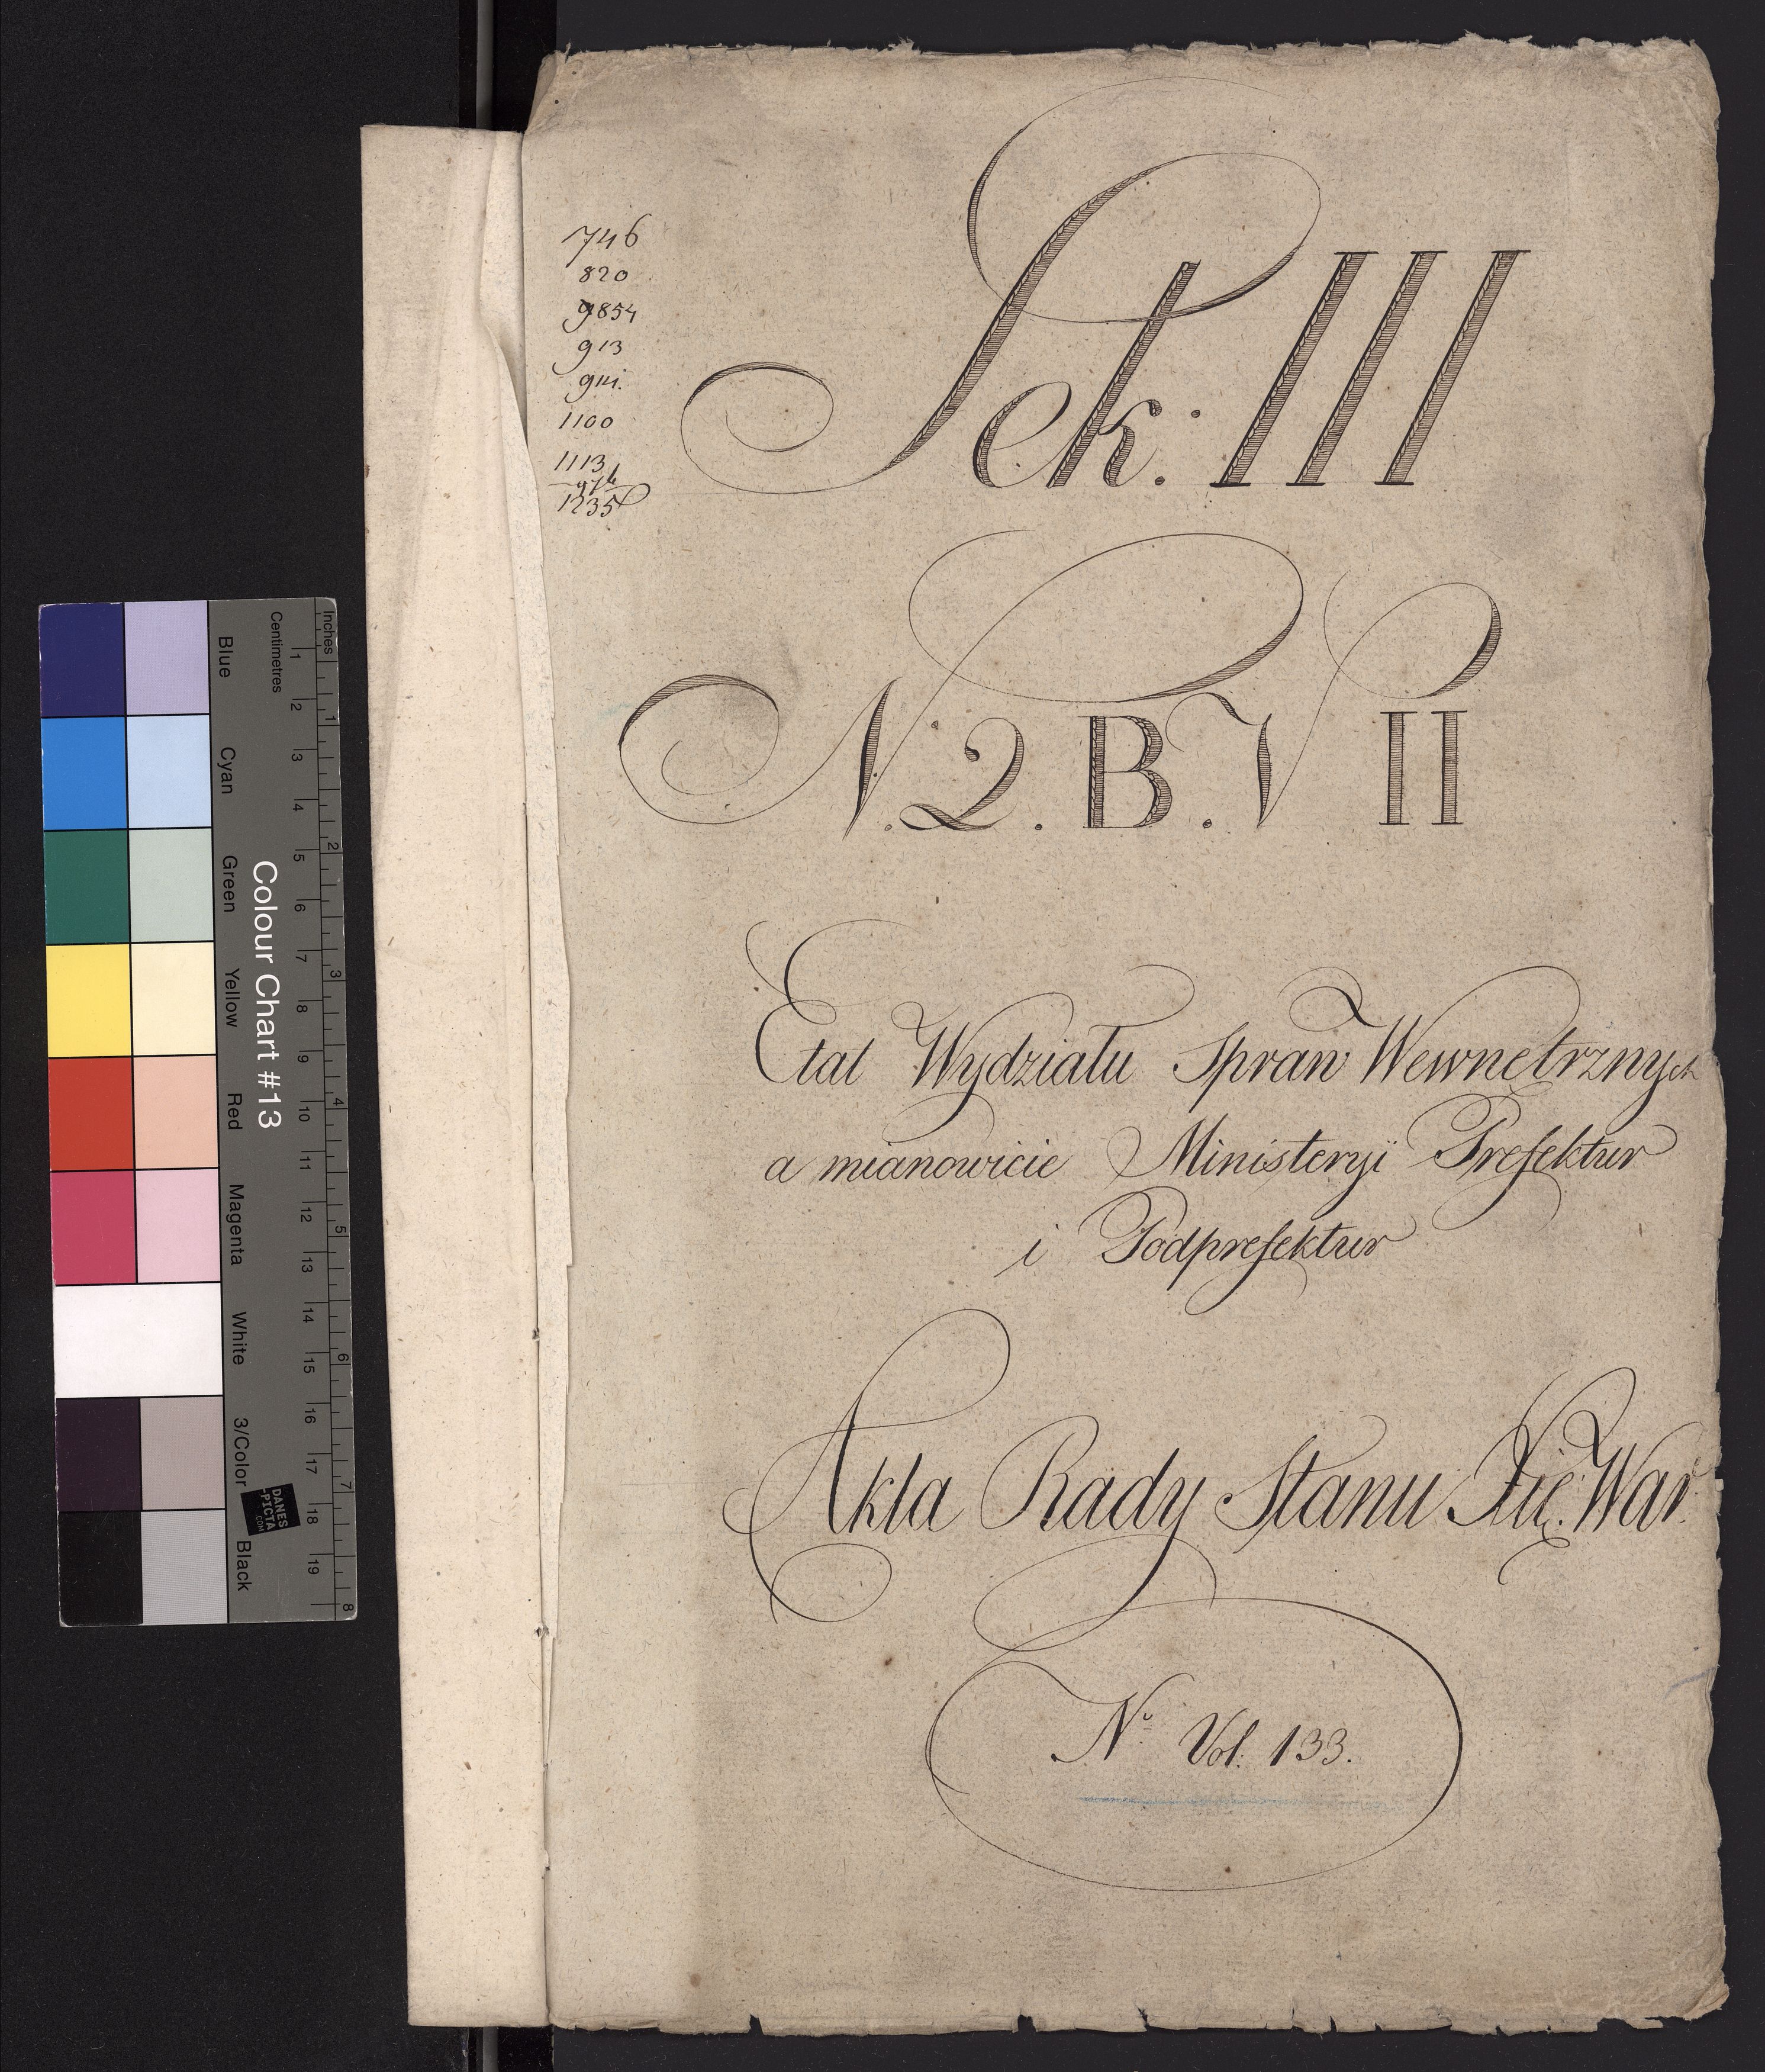 746
820
9854
913
1100
1113
1235
Sek: III
N. 2. B. V II
Etat Wydziału Spraw Wewnętrznych
a mianowicie Ministeryi Prefektur
i Podprefektur
Akta Rady Stanu Xię: War:
No Vol. 133.
Colour Chart #13
Blue
Cyan
Green
Yellow
Red
Magenta
White
3/Color
Black
Centimetres
1 2 3 4 5 6 7 8 9 10 11 12 13 14 15 16 17 18 19
Inches
1 2 3 4 5 6 7 8
DANES
PICTA
.COM